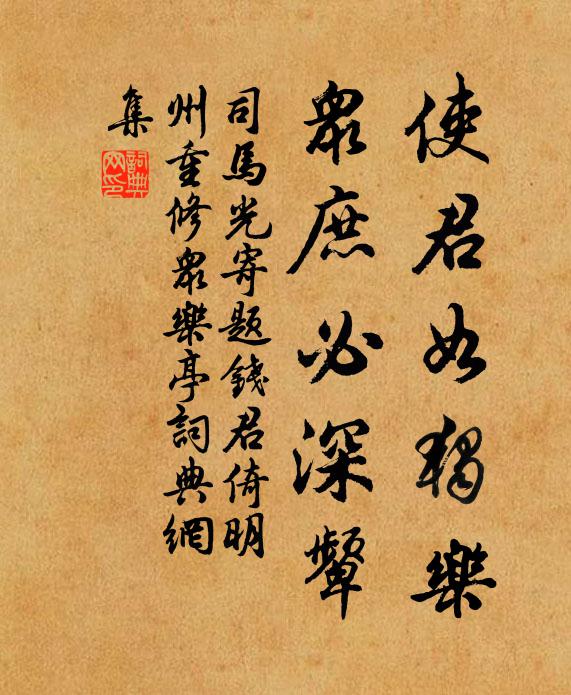 使君如獨樂
衆庶必深顰
司馬光寄題錢君倚明
州重修衆樂亭詞典網
集
詞典
网印